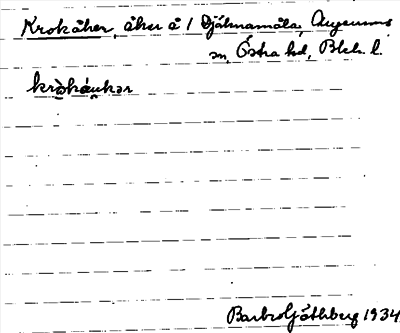 Krokåker, åker å 1 Djälnamåla, Augerums
sn, Östra hd, Blek. l.
kròkáukər
Barbro Göthberg 1934